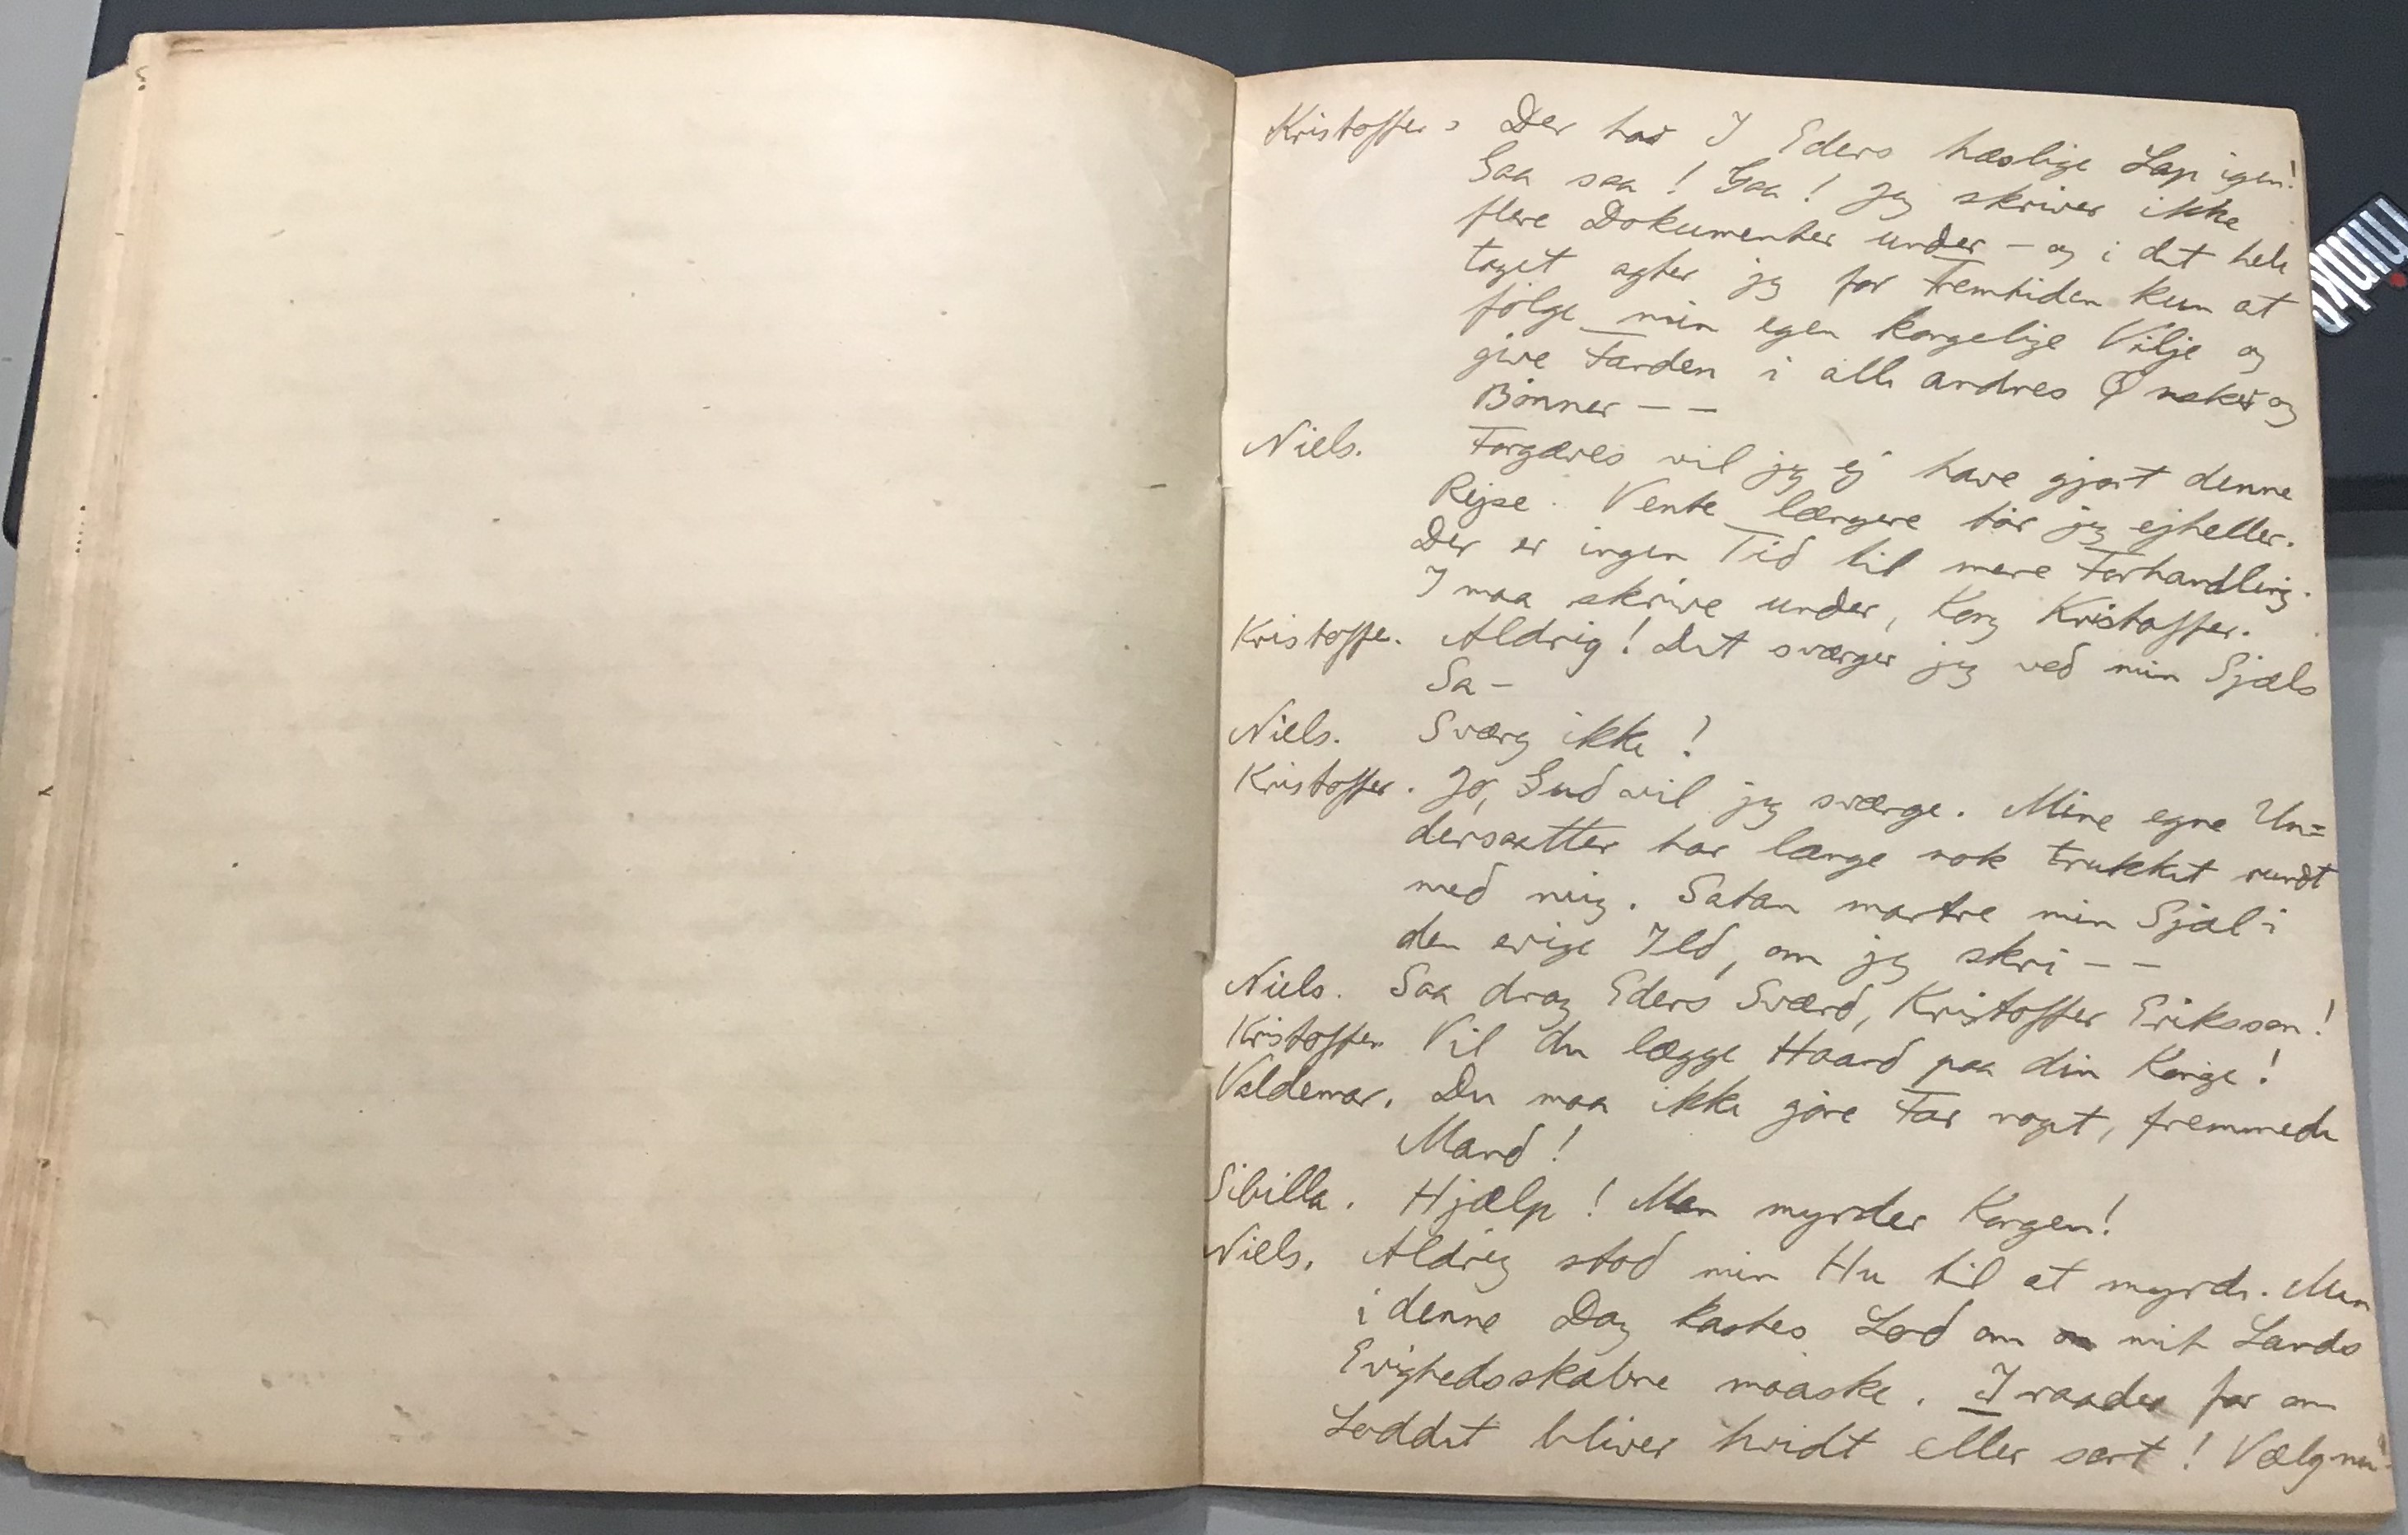 Kristoffer. Der har I Eders hæslige Lap igen!
Gaa saa! Gaa! Jeg skriver ikke
flere Dokumenter under – og i det hele
taget agter jeg for Fremtiden kun at
følge min egen kongelige Vilje og
give Fanden i alle andres Ønsker og
Bønner – –
Niels. Forgæves vil jeg ej have gjort denne
Rejse. Vente længere tør jeg ejheller.
Der er ingen Tid til mere Forhandling.
I maa skrive under, Kong Kristoffer.
Kristoffer. Aldrig! Det sværger jeg ved min Sjæls
Sa –
Niels. Sværg ikke!
Kristoffer. Jo, Gud vil jeg sværge. Mine egne Un=
dersaatter har længe nok trukket rundt
med mig. Satan martre min Sjæl i
den evige Ild, om jeg skri – –
Niels. Saa drag Eders Sværd, Kristoffer Eriksson!
Kristoffer Vil du lægge Haand paa din Konge!
Valdemar. Du maa ikke gøre Far noget, fremmede
Mand!
Sibilla. Hjælp! Man myrder Kongen!
Niels. Aldrig stod min Hu til at myrde. Men
i denne Dag kastes Lod om mit Lands
Evighedsskæbne maaske. I raader for om
Loddet bliver hvidt eller sort! Vælg nu